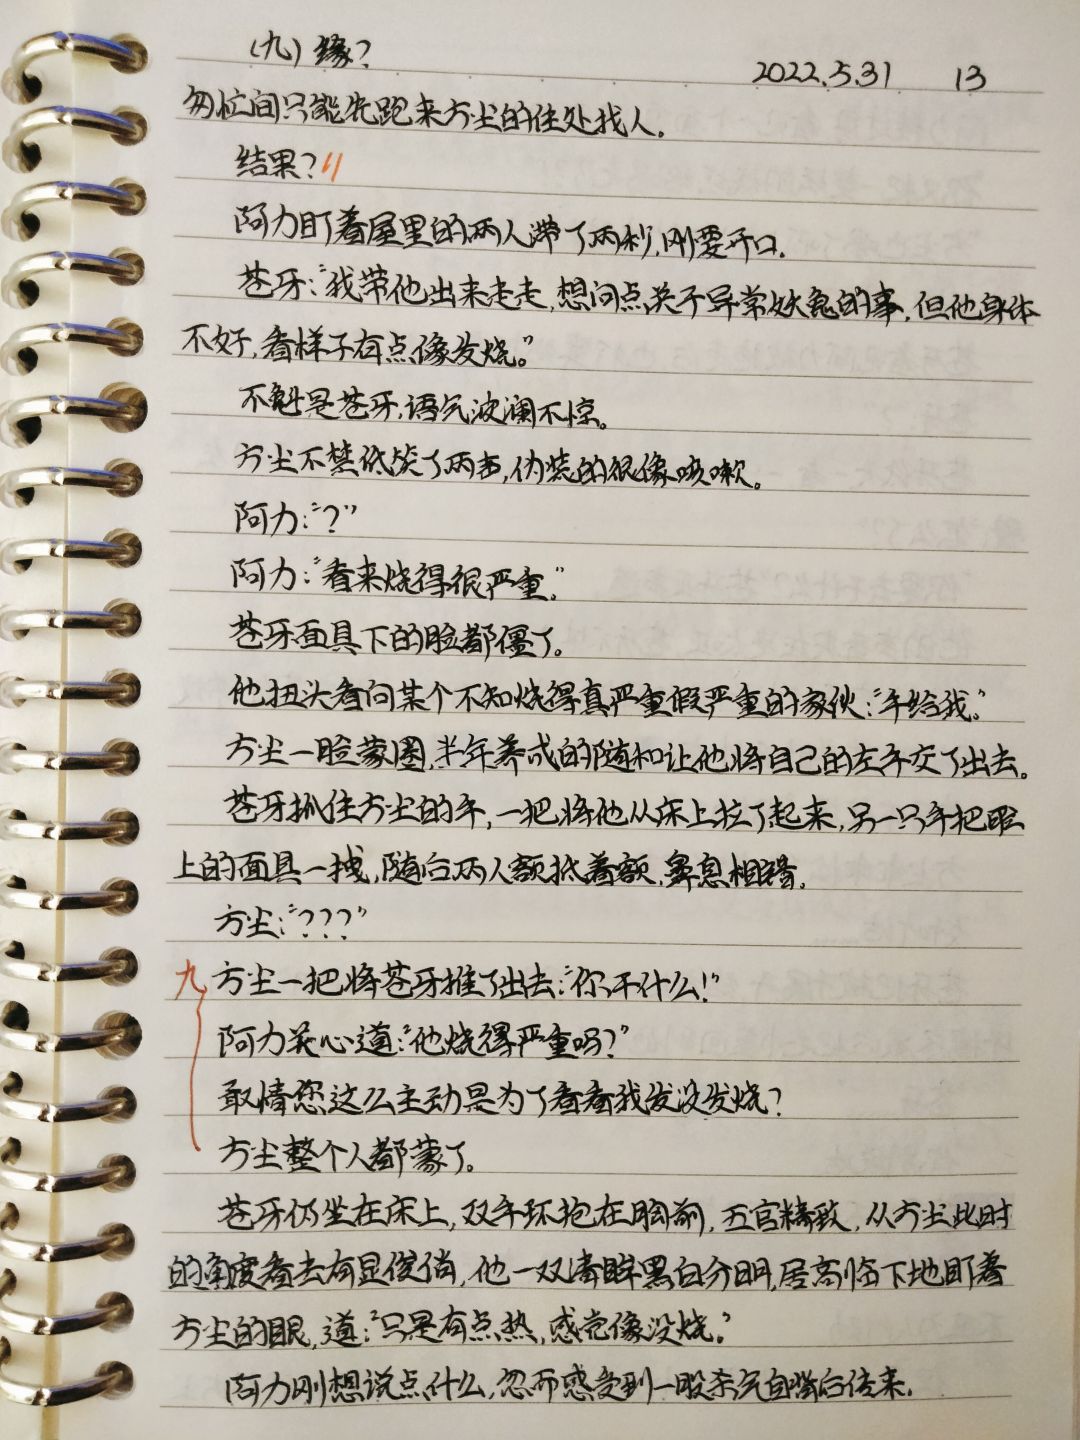 (九) 缘?
2022.5.31 13
匆忙间只能先跑来方尘的住处找人。
结果?
阿力盯着屋里的两人滞了两秒,刚要开口。
苍牙:“我带他出来走走,想问点关于异常妖鬼的事,但他身体
不好,看样子有点像发烧。”
不愧是苍牙,语气波澜不惊。
方尘不禁低笑了两声,伪装的很像咳嗽。
阿力:“?”
阿力:“看来烧得很严重。”
苍牙面具下的脸都僵了。
他扭头看向某个不知烧得真严重假严重的家伙:“手给我。”
方尘一脸蒙圈,半年养成的随和让他将自己的左手交了出去。
苍牙抓住方尘的手,一把将他从床上拉了起来,另一只手把脸
上的面具一拽,随后两人额抵着额,鼻息相错。
方尘:“???”
九 方尘一把将苍牙推了出去:“你干什么!”
阿力关心道:“他烧得严重吗?”
敢情您这么主动是为了看看我发没发烧?
方尘整个人都蒙了。
苍牙仍坐在床上,双手环抱在胸前,五官精致,从方尘此时
的角度看去有显俊俏,他一双清眸黑白分明,居高临下地盯着
方尘的眼,道:“只是有点热,感觉像没烧。”
阿力刚想说点什么,忽而感受到一股杀气自背后传来。